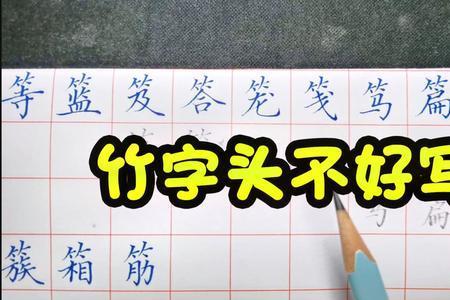 等篮笈答笼笺笃篇
竹字头不好写
篇
簇箱筋